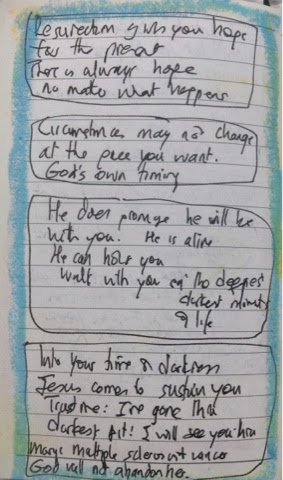 Resurrection gives you hope
for the present
There is always hope
no matter what happens
Circumstances may not change
at the pace you want.
God's own timing
He does promise he will be
with you. He is alive
He can hold you
walk with you in the deepest
darkest moments
of life
Into your time of darkness
Jesus comes to sustain you
Trust me: I've gone that
darkest pit! I will see you thru
Marge multiple sclerosis cancer
God will not abandon her.